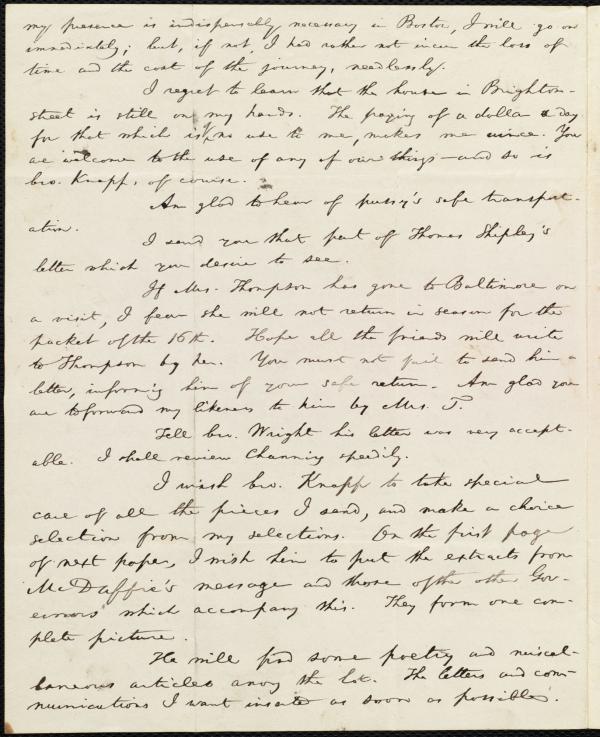 my presence is indispensably necessary in Boston, I will go on
immediately; but, if not, I had rather not incur the loss of
time and the cost of the journey, needlessly.
I regret to learn that the house in Brighton-
street is still on my hands. The paying of a dollar a day
for that which is of no use to me, makes me wince. You
are welcome to the use of any of our things—and so is
bro. Knapp, of course.
Am glad to hear of pussy's safe transport-
ation.
I send you that part of Thomas Shipley's
letter which you desire to see.
If Mrs. Thompson has gone to Baltimore on
a visit, I fear she will not return in season for the
packet of the 16th. Hope all the friends will write
to Thompson by her. You must not fail to send him a
letter, informing him of your safe return. Am glad you
are to forward my likeness to him by Mrs. T.
Tell bro. Wright his letter was very accept-
able. I shall review Channing speedily.
I wish bro. Knapp to take special
care of all the pieces I send, and make a choice
selection from my selections. On the first page
of next paper, I wish him to put the extracts from
McDuffie's message and those of the other Gov-
ernors which accompany this. They form one com-
plete picture.
He will find some poetry and miscel-
laneous articles among the lot. The letters and com-
munications I want inserted as soon as possible.